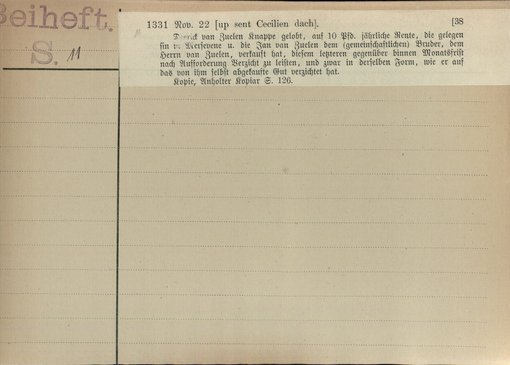 Beiheft.
S. 11
1331 Nov. 22 [up sent Cecilien dach]. [38
Derrick van Zuelen Knappe gelobt, auf 10 Pfd. jährliche Rente, die gelegen
sin v. Mersevene u. die Jan van Zuelen dem (gemeinschaftlichen) Bruder, dem
Herrn van Zuelen, verkauft hat, diesem letzteren gegenüber binnen Monatsfrist
nach Aufforderung Verzicht zu leisten, und zwar in derselben Form, wie er auf
das von ihm selbst abgekaufte Gut verzichtet hat.
Kopie, Anholter Kopiar S. 126.